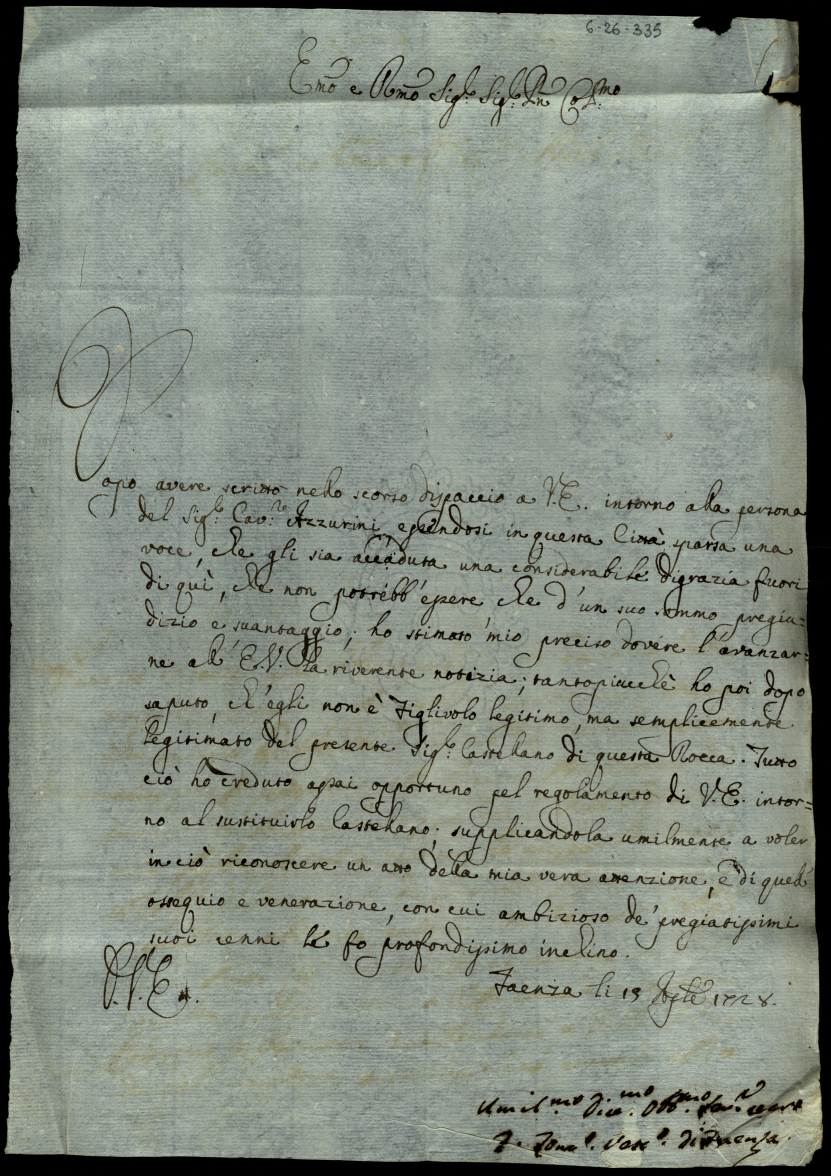 6-26-335
Emo e Rmo Sig.r Sig.r Pne Col.mo
Dopo avere scritto nello scorso dispaccio a V.E. intorno alla persona
del Sig.r Cav.re Azzurini essendosi in questa Città sparsa una
voce, che gli sia accaduta una considerabile disgrazia fuori
di quì, che non potrebb'essere che d'un suo sommo pregiu=
dizio e svantaggio; ho stimato mio preciso dovere l'avanzar=
ne all'E.V. la riverente notizia; tantopiucchè ho poi dopo
saputo, ch'egli non è Figlivolo legitimo, ma semplicemente
legitimato del presente Sig.r Castellano di questa Rocca. Tutto
ciò hò creduto assai opportuno pel regolamento di V.E. intor=
no al sustituirlo Castellano; supplicandola umilmente a voler
in ciò riconoscere un atto della mia vera attenzione, e di quell'
ossequio e venerazione, con cui ambizioso de' pregiatissimi
suoi cenni le fo profondissimo inchino.
Faenza li 19 1728.
Umil.mo Div.mo Obb.mo
Vesc.o di Faenza.